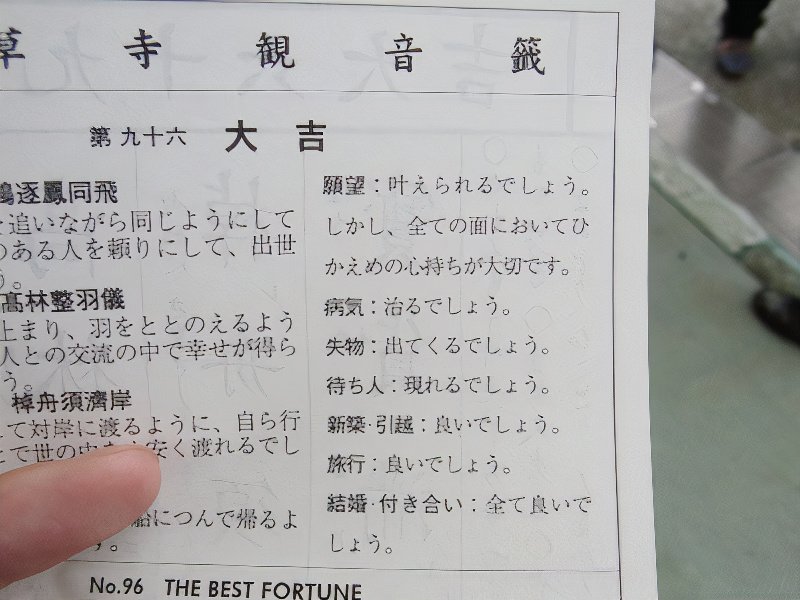 寺 観 音 籤
第 九十六 大 吉
逐鳳同飛
追いながら同じようにして
のある人を頼りにして、出世
う。
高林整羽儀
止まり、羽をととのえるよう
人との交流の中で幸せが得ら
う。
棹舟須濟岸
て対岸に渡るように、自ら行
とで世の中を 安く渡れるでし
船につんで帰るよ
す。
願望：叶えられるでしょう。
しかし、全ての面においてひ
かえめの心持ちが大切です。
病気：治るでしょう。
失物：出てくるでしょう。
待ち人：現れるでしょう。
新築・引越：良いでしょう。
旅行：良いでしょう。
結婚・付き合い：全て良いで
しょう。
No.96 THE BEST FORTUNE